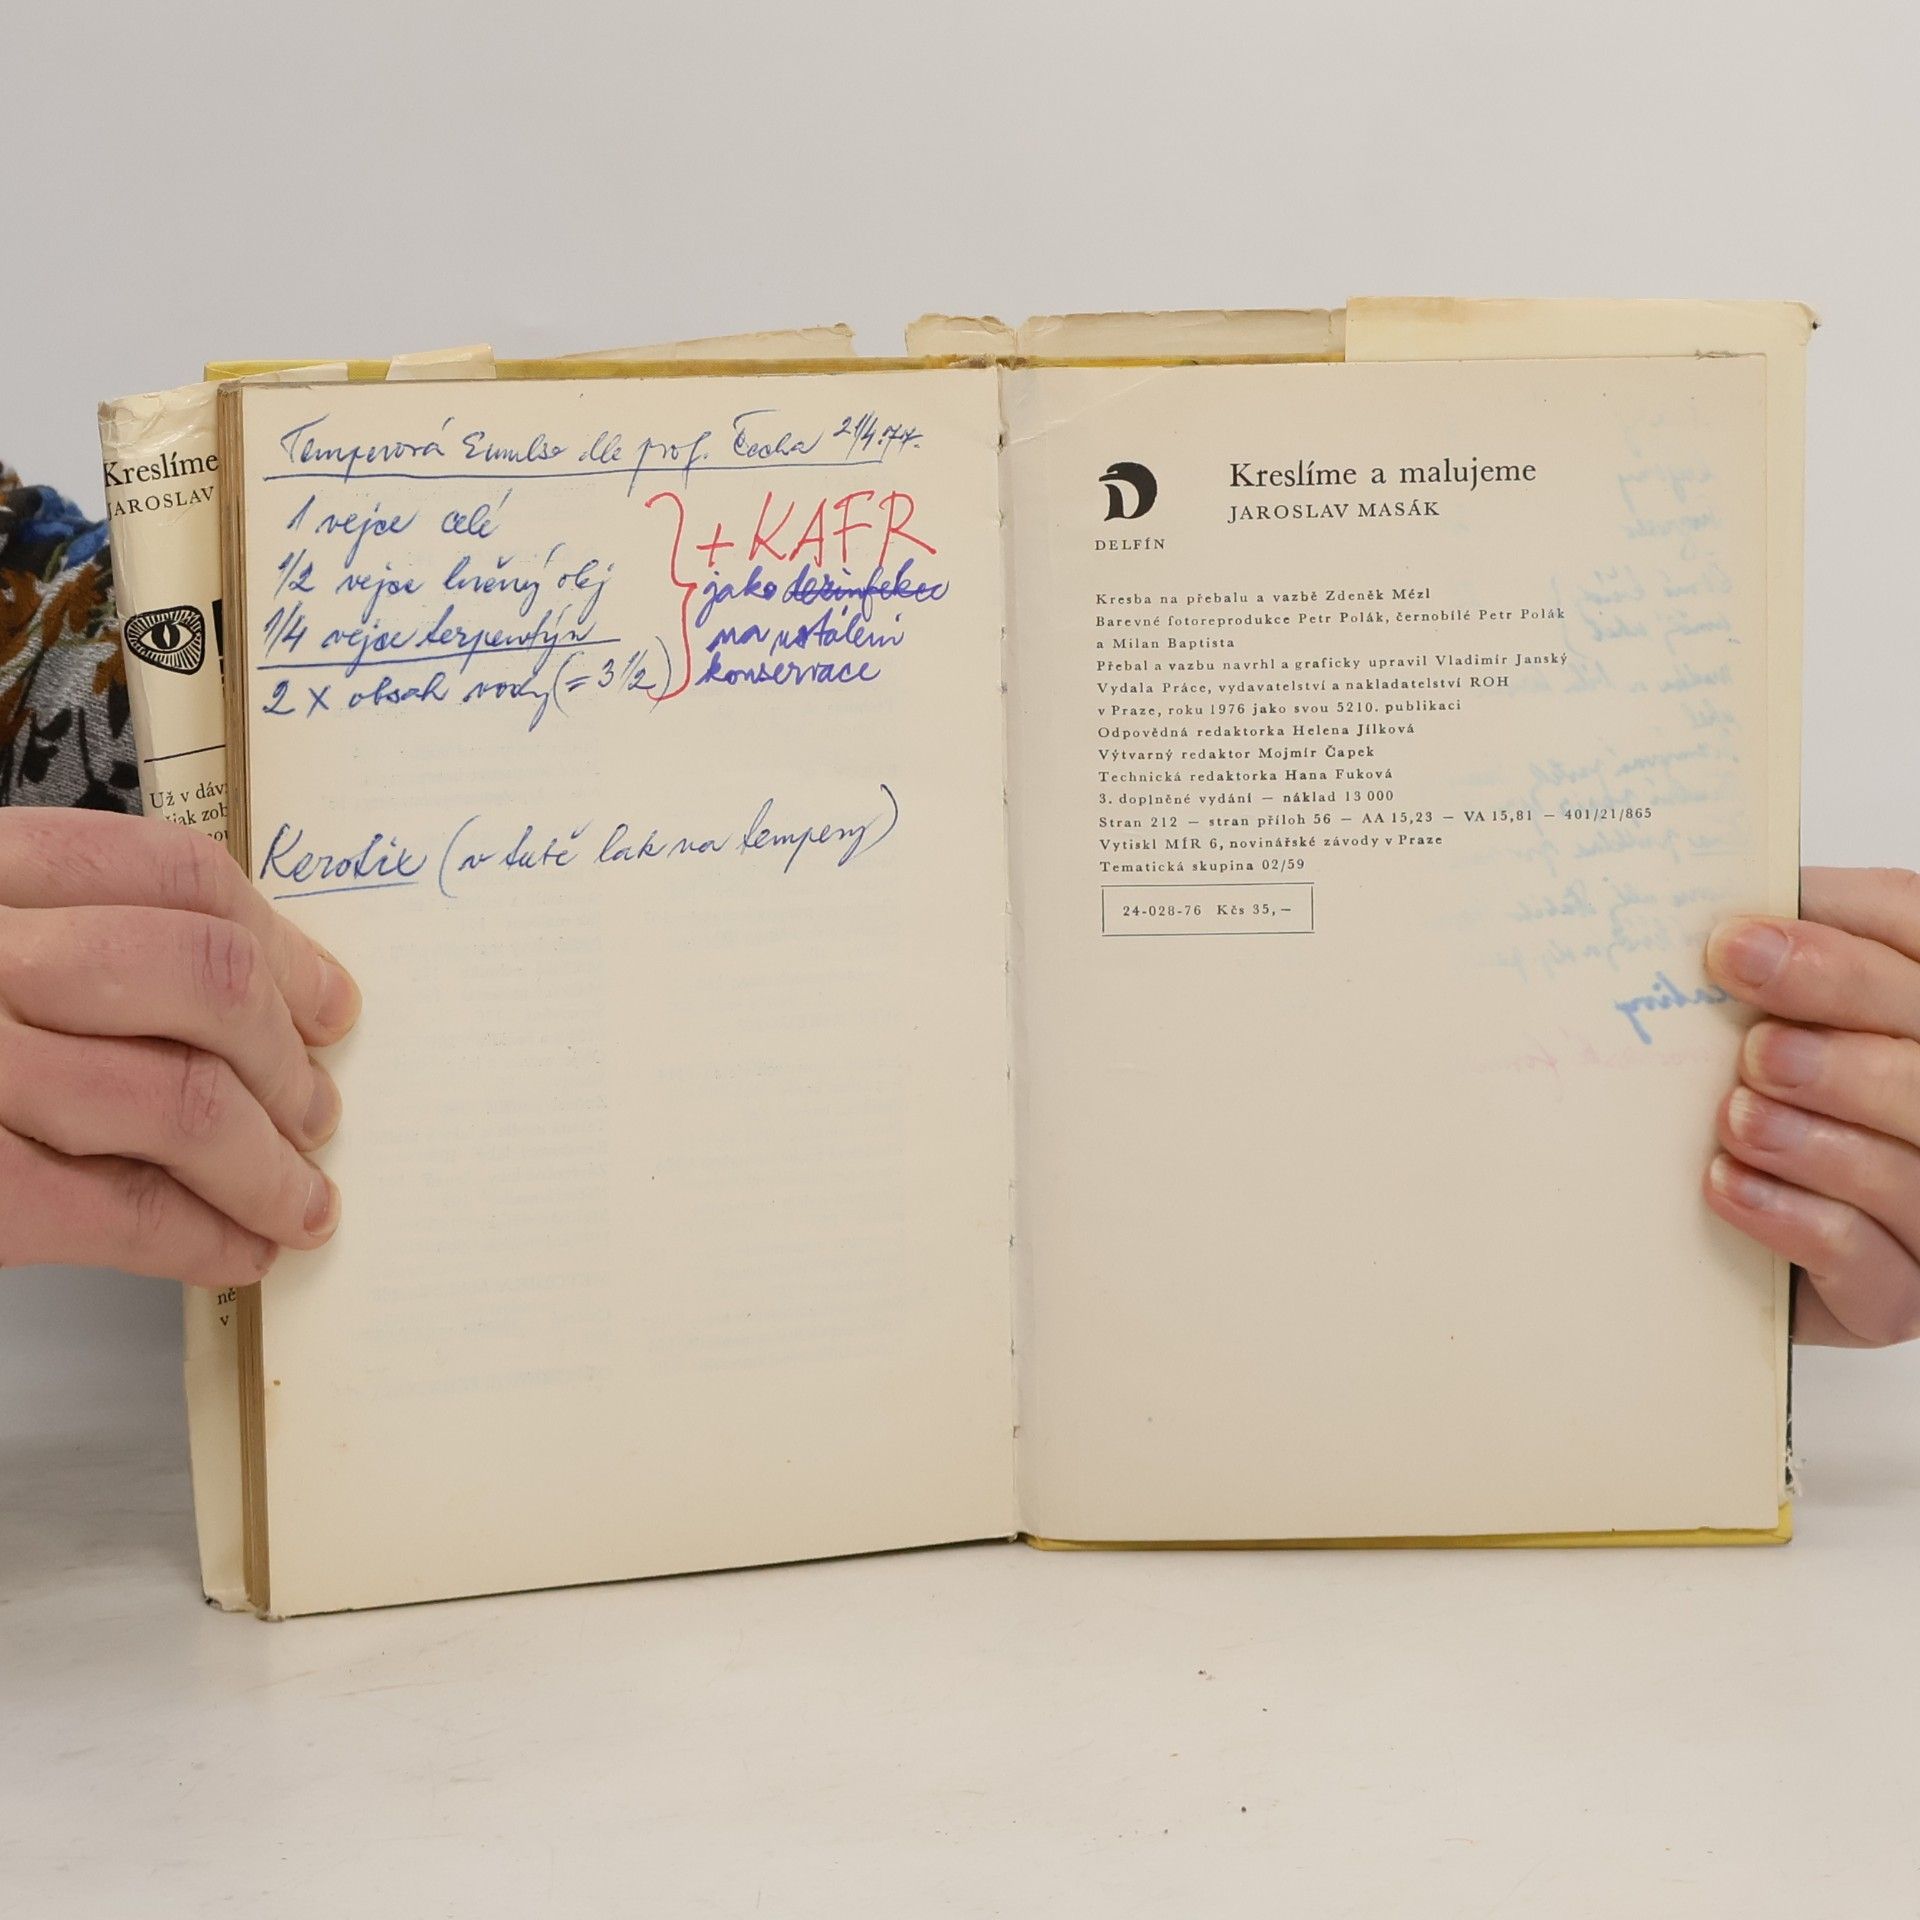 Kreslíme
JAROSLAV
!
Už v dáv
jak zob
ně
v
Temperová Emulse dle prof. Čecha 21/4.77.
1 vejce celé
1/2 vejce lněný olej
1/4 vejce terpentýn
2 x obsah vody (= 3 1/2)
+ KAFR
jako dezinfekce
na ustálení
konservace
Kerotix (v tubě lak na tempery)
D
DELFÍN
Kreslíme a malujeme
JAROSLAV MASÁK
Kresba na přebalu a vazbě Zdeněk Mézl
Barevné fotoreprodukce Petr Polák, černobílé Petr Polák
a Milan Baptista
Přebal a vazbu navrhl a graficky upravil Vladimír Janský
Vydala Práce, vydavatelství a nakladatelství ROH
v Praze, roku 1976 jako svou 5210. publikaci
Odpovědná redaktorka Helena Jílková
Výtvarný redaktor Mojmír Čapek
Technická redaktorka Hana Fuková
3. doplněné vydání — náklad 13 000
Stran 212 — stran příloh 56 — AA 15,23 — VA 15,81 — 401/21/865
Vytiskl MÍR 6, novinářské závody v Praze
Tematická skupina 02/59
24-028-76 Kčs 35,—